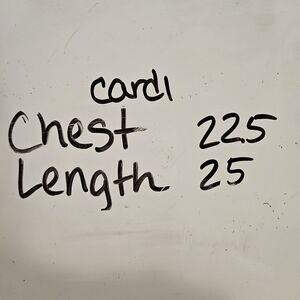 cardi
Chest 22.5
Length 25